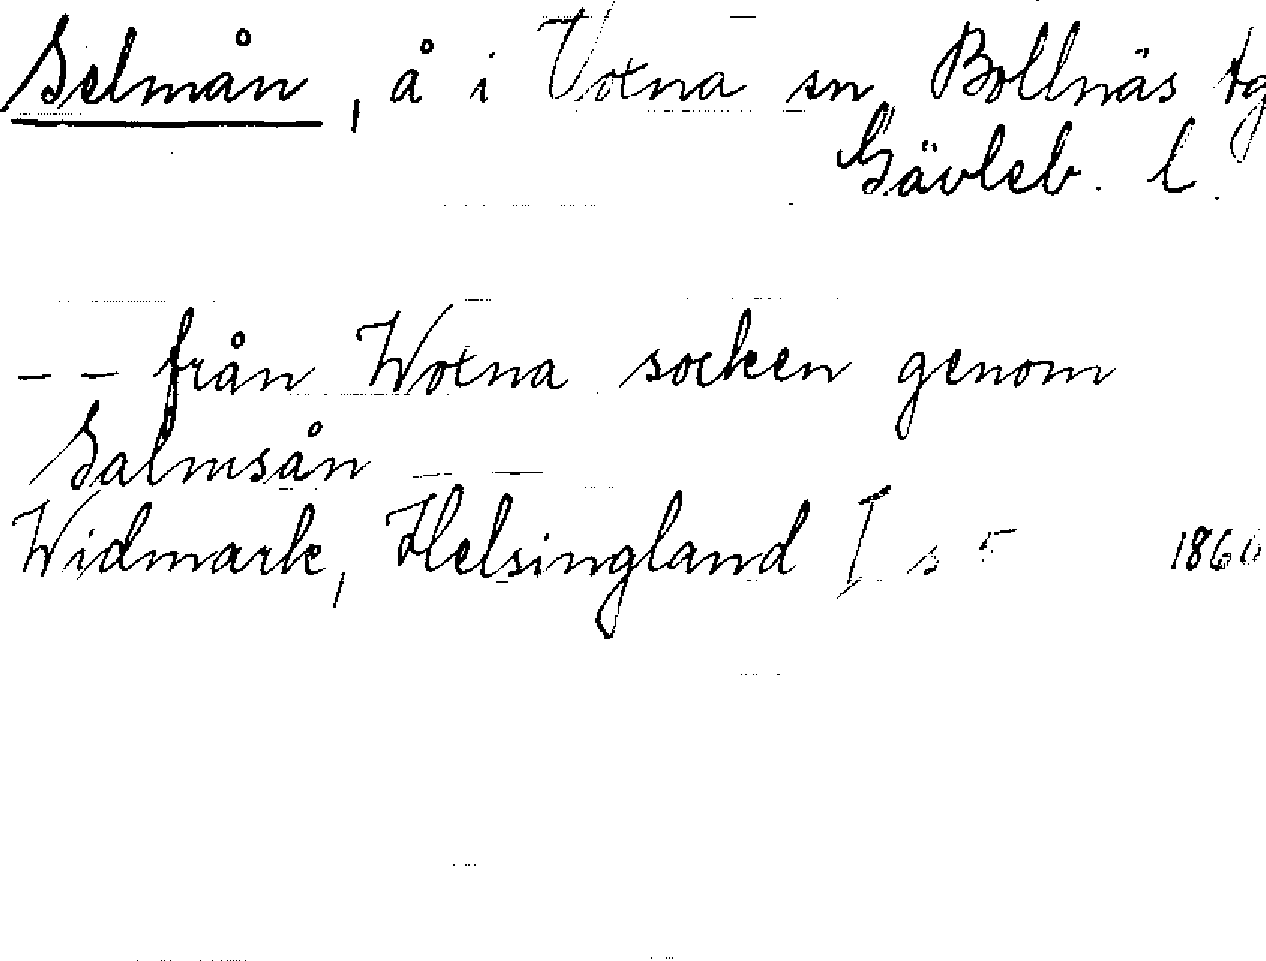 Selmån, å i Voxna sn, Bollnäs tg
Gävleb. l.
- - från Woxna socken genom
Salmsån - -
Widmark, Helsingland I s 5 1860